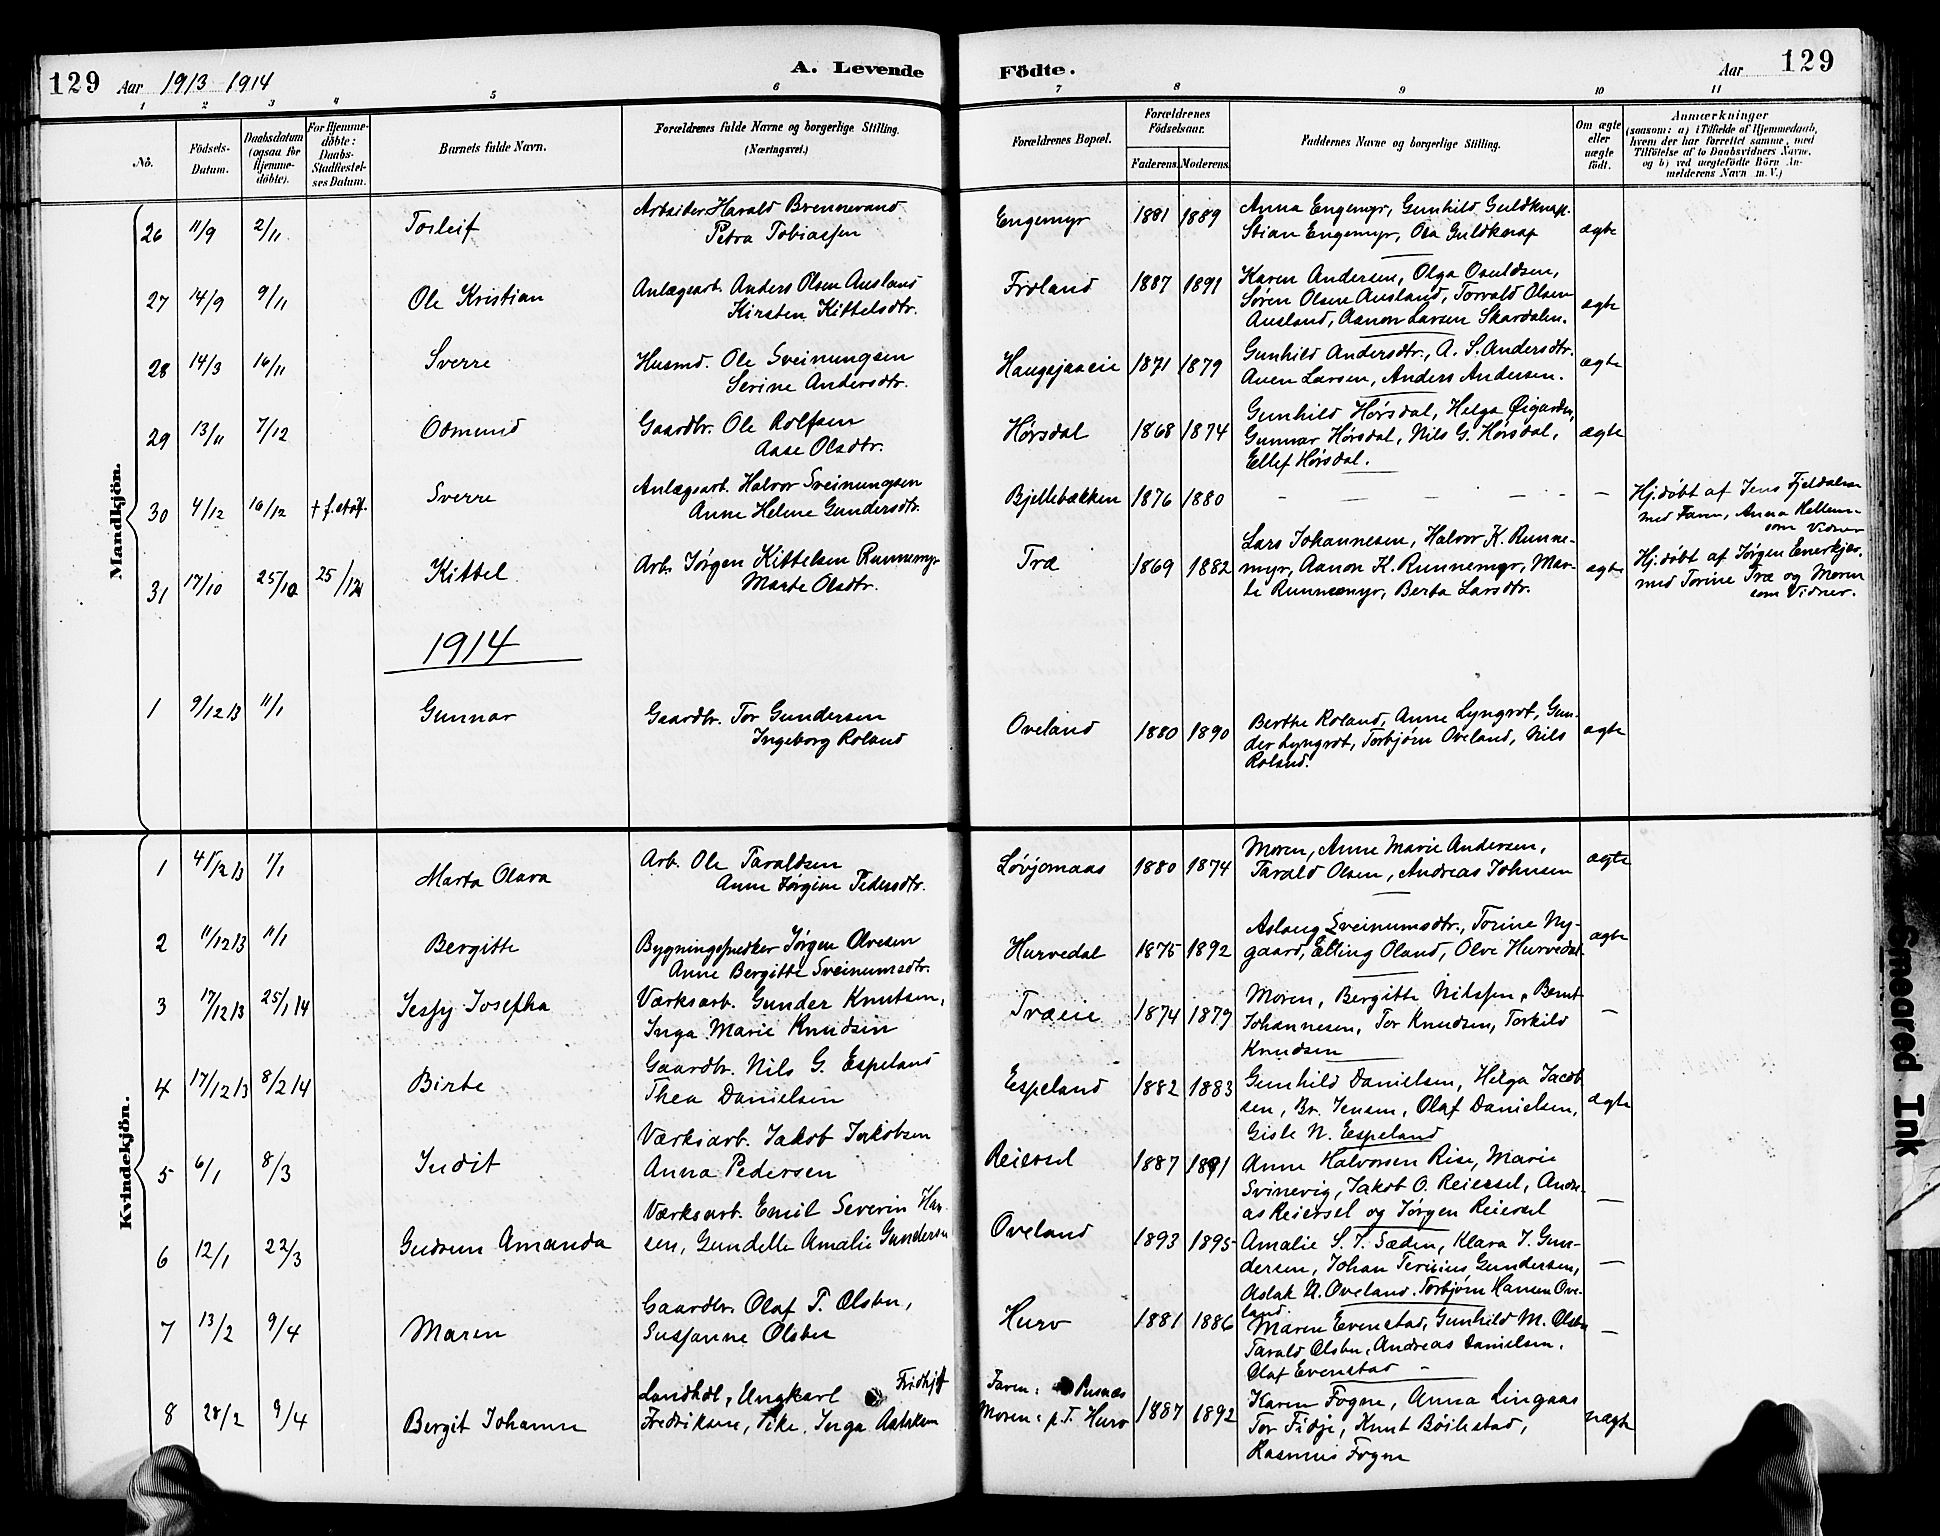 129 Aar 1913 1914 A. Levende Födte. Aar 129
1 2 3 4 5 6 7 8 9 10 11
No.
Födsels-Datum.
Daabsdatum (ogsaa for Hjemme-döbte).
For Hjemme-döbte: Daabs-Stadfæstel-ses Datum.
Barnets fulde Navn.
Forældrenes fulde Navne og borgerlige Stilling.
(Næringsvei.)
Forældrenes Bopæl.
Forældrenes Födselsaar.
Faderens. Moderens.
Faddernes Navne og borgerlige Stilling.
Om ægte eller uægte födt.
Anmærkninger
(saasom: a) i Tilfælde af Hjemmedaab,
hvem der har forrettet samme, med
Tilföielse af to Daabsvidners Navne,
og b) ved uægtefödte Börn An-
melderens Navn m. V.)
Mandkjön.
26 11/9 2/11 Torleif Arbeider Harald Brennevand
Petra Tobiassen
Engemyr 1881 1889 Anna Engemyr, Gunhild Guldknap.
Stian Engemyr, Ola Guldknap ægte
27 14/9 9/11 Ole Kristian Anlægsarb. Anders Olsen Ausland
Kirsten Kittelsdtr.
Froland 1887 1891 Karen Andersen, Olga Osuldsen,
Søren Olsen Ausland, Torvald Olsen
Ausland, Aanon Larsen Skardalen. ægte
28 14/3 16/11 Sverre Husmd. Ole Sveinungsen
Serine Andersdtr.
Haugsjaaeie 1871 1879 Gunhild Andersdtr., A. S. Andersdtr.
Auen Larsen, Anders Andersen. ægte
29 13/11 7/12 Odmund Gaardbr. Ole Rolfsen
Aase Olsdtr.
Hørsdal 1868 1874 Gunhild Hørsdal, Helga Øigarden,
Gunnar Hørsdal, Nils G. Hørsdal,
Ellef Hørsdal. ægte
30 4/12 16/12 + f. stadf. Sverre Anlægsarb. Halvor Sveinungsen
Anne Helene Gundersdtr.
Bjellebækken 1876 1880 – – – – – – –
Hj.døbt af Jens Fjeldalen
med Faren, Anna Kellem-
som Vidner
31 17/10 25/10 25/12 Kittel Arb. Jørgen Kittelsen Runnemyr
Marte Olsdtr.
Træ 1869 1882 Lars Johannesen, Halvor K. Runne-
myr, Aanon K. Runnemyr, Mar-
te Runnemyr, Berta Larsdtr. ægte
Hj.døbt af Jørgen Enerkjær
med Torine Træ og Moren
som Vidner.
1914
1 9/12 13 11/1 Gunnar Gaardbr. Tor Gundersen
Ingeborg Roland
Oveland 1880 1890 Berthe Roland, Anne Lyngrot, Gun-
der Lyngrot, Torbjørn Oveland, Nils
Roland. ægte
Kvindekjön.
1 4/12 13 1/1 Marta Olava Arb. Ole Taraldsen
Anne Jørgine Pedersdtr.
Løvjomaas 1880 1874 Moren, Anne Marie Andersen,
Tarald Olsen, Andreas Johnsen ægte
2 11/12 13 11/1 Bergitte Bygningssnedker Jørgen Olvesen
Anne Bergitte Sveinumsdtr.
Hurvedal 1875 1892 Aslaug Sveinumsdtr., Torine Ny-
gaard, Elling Oland, Olve Hurvedal. ægte
3 17/12 13 25/1 14 Jessy Josefha Værksarb. Gunder Knutsen,
Inga Marie Knudsen
Træeie 1874 1879 Moren, Bergitte Nilssen, Bernt
Johannesen, Tor Knudsen, Torkild
Knudsen –
4 17/12 13 8/2 14 Birte Gaardbr. Nils G. Espeland
Thea Danielsen
Espeland 1882 1883 Gunhild Danielsen, Helga Jacob
sen, Br. Jensen, Olaf Danielsen,
Gisle N. Espeland ægte
5 6/1 8/3 Judit Værksarb. Jakob Jakobsen
Anna Pedersen
Reiersel 1887 1891 Anne Halvorsen Rise, Marie
Svinevig, Jakob O. Reiersel, Andre-
as Reiersel og Jørgen Reiersel –
6 12/1 22/3 Gudrun Amanda Værksarb. Emil Severin Han
sen, Gundelle Amalie Gundersen
Oveland 1893 1895 Amalie S. T. Sæden, Klara J. Gun-
dersen, Johan Gundersen,
Aslak N. Oveland. Torbjørn Hansen Ove-
land. –
7 13/2 9/4 Maren Gaardbr. Olaf T. Olsbu,
Susanne Olsbu
Hurv 1881 1886 Maren Evenstad, Gunhild M. Olsbu
Tarald Olsbu, Andreas Danielsen,
Olaf Evenstad –
8 28/2 9/4 Bergit Johanne Landhdl., Ungkarl Fridtjof
Fredriksen, Pike, Inga Aslaksen
Faren: Pusnæs
Moren: p.T. Hurv 1887 1892 Karen Fogne, Anna Lingaas
Tor Fidje, Knut Bøilestad,
Rasmus Fogne uægte
Smeared Ink